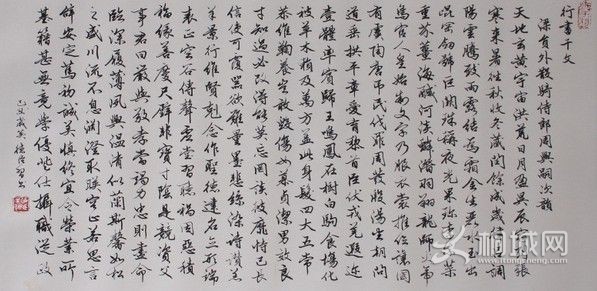 行書千文
梁員外散騎侍郎周興嗣次韻
天地玄黃宇宙洪荒日月盈昃辰宿列張
寒來暑往秋收冬藏閏餘成歲律呂調
陽雲騰致雨露結為霜金生麗水玉出
崑岡劍號巨闕珠稱夜光果珍李柰菜
重芥薑海鹹河淡鱗潛羽翔龍師火帝
鳥官人皇始制文字乃服衣裳推位讓國
有虞陶唐弔民伐罪周發殷湯坐朝問
道垂拱平章愛育黎首臣伏戎羌遐邇
壹體率賓歸王鳴鳳在樹白駒食場化
被草木賴及萬方蓋此身髮四大五常
恭惟鞠養豈敢毀傷女慕貞潔男效良
才知過必改得能莫忘罔談彼短靡恃己長
信使可覆器欲難量墨悲絲染詩讚羔
羊景行維賢剋念作聖德建名立形端
表正空谷傳聲虛堂習聽禍因惡積
福緣善慶尺璧非寶寸陰是競資父
事君曰嚴與敬孝當竭力忠則盡命
臨深履薄夙興溫凊似蘭斯馨如松
之盛川流不息淵澄取映容止若思言
辭安定篤初誠美慎終宜令榮業所
基籍甚無竟學優登仕攝職從政
己丑歲
桐城网